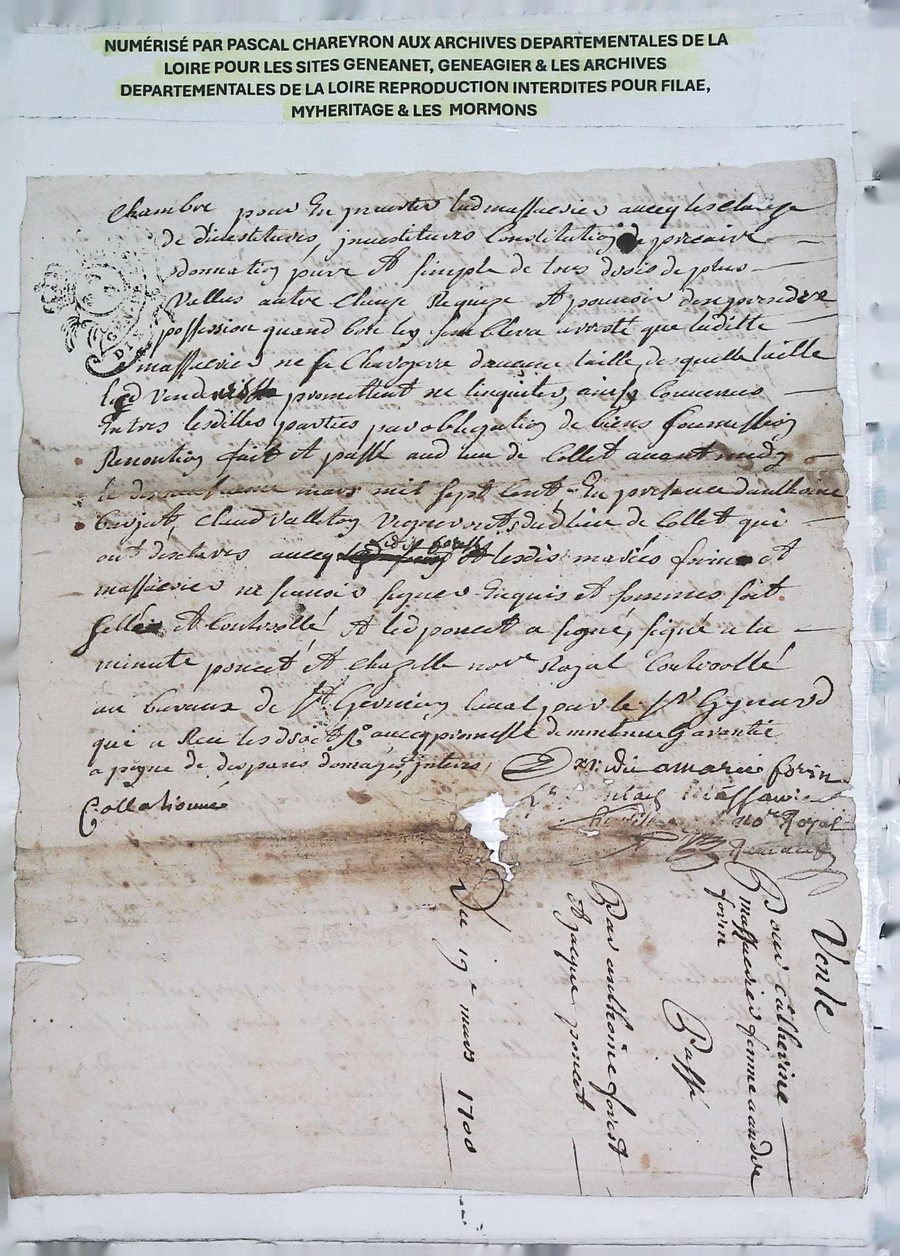 NUMÉRISÉ PAR PASCAL CHAREYRON AUX ARCHIVES DEPARTEMENTALES DE LA
LOIRE POUR LES SITES GENEANET, GENEAGIER & LES ARCHIVES
DEPARTEMENTALES DE LA LOIRE REPRODUCTION INTERDITES POUR FILAE,
MYHERITAGE & LES MORMONS
Chambre pour En lad massacrier avecq les Clauze
de divestitures, jnvestitures Constitution de precaire
donnation pure Et simple de tous drois de plus
Vallus autre Clauze Requize Et pouvoir den prendre
possession quand bon luy semblera arresté que laditte
massacrier ne se Chargera daucune taille, desquelle taille
promettent ne linquiter, ainsy Convenus
Entres lesdittes parties par obligation de biens soumission
Renontion fait Et passé aud lieu de Collet avant midy
le mars mil sept Cent En presence danthoine
Claud Valleton Vigneron dud lieu de Collet qui
ont declarés avecq Et lesdis mariés forin et
massacrier ne scavoir signer Enquis et sommes soit
scellé Et Controllé Et led poncet a signé, signé a la
minute poncet Et Chazelle nore Royal Controllé
au bureaux de St Germain laval par le Sr Gynard
qui a Reçu les droit avecq promesse de maintenue Garantie
a peyne de despans domages interes, amarie forin
Collationné
nore Royal
Vente
Pour Catherine
massacrier femme a andre
forin
Passé
Par anthoine forest
Et jacque poncet
Du 19e mars 1700